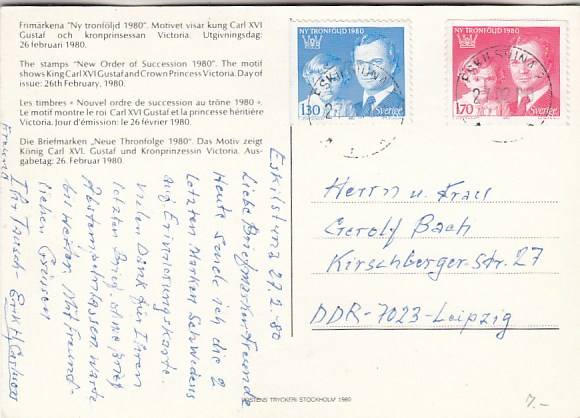 Frimärkena "Ny tronföljd 1980". Motivet visar kung Carl XVI
Gustaf och kronprinsessan Victoria. Utgivningsdag:
26 februari 1980.
The stamps "New Order of Succession 1980". The motif
shows King Carl XVI Gustaf and Crown Princess Victoria. Day of
issue: 26th February, 1980.
Les timbres « Nouvel ordre de succession au trône 1980 ».
Le motif montre le roi Carl XVI Gustaf et la princesse héritière
Victoria. Jour d'émission: le 26 février 1980.
Die Briefmarken „Neue Thronfolge 1980". Das Motiv zeigt
König Carl XVI. Gustaf und Kronprinzessin Victoria. Aus-
gabetag: 26. Februar 1980.
NY TRONFÖLJD 1980
130 Sverige
NY TRONFÖLJD 1980
170 Sverige
ESKILSTUNA
ESKILSTUNA
Eskilstuna 27-2-80
Liebe Briefmarkenfreunde
Heute sende ich die 2
letzten Marken Schwedens
auf Erinnerungskarte.
Vielen Dank für Ihren
letzten Brief.
Mit Freund-
lichen Grüssen
Ihr Tausch-
Herrn u. Frau
Gerolf Bach
Kirschberger-Str. 27
DDR-7023-Leipzig
POSTENS TRYCKERI STOCKHOLM 1980
7.-